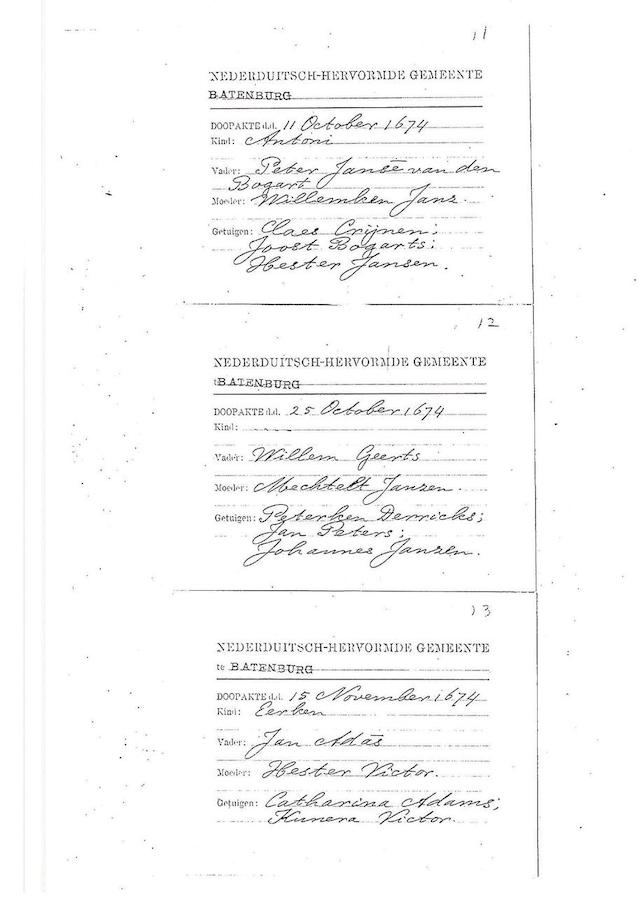 11
NEDERDUITSCH-HERVORMDE GEMEENTE
BATENBURG
DOOPAKTE d.d. 11 October 1674
Kind: Antoni
Vader: Peter Jansē van den
Bogart
Moeder: Willemken Janz.
Getuigen: Claes Crijnen;
Joost Bogarts;
Hester Jansen.
12
NEDERDUITSCH-HERVORMDE GEMEENTE
te BATENBURG
DOOPAKTE d.d. 25 October 1674
Kind: - - - -
Vader: Willem Geerts
Moeder: Mechtelt Janzen.
Getuigen: Peterken Derricks;
Jan Peters;
Johannes Janzen.
13
NEDERDUITSCH-HERVORMDE GEMEENTE
te BATENBURG
DOOPAKTE d.d. 15 November 1674
Kind: Eerken
Vader: Jan Adās
Moeder: Hester Victor.
Getuigen: Catharina Adams;
Kunera Victor.